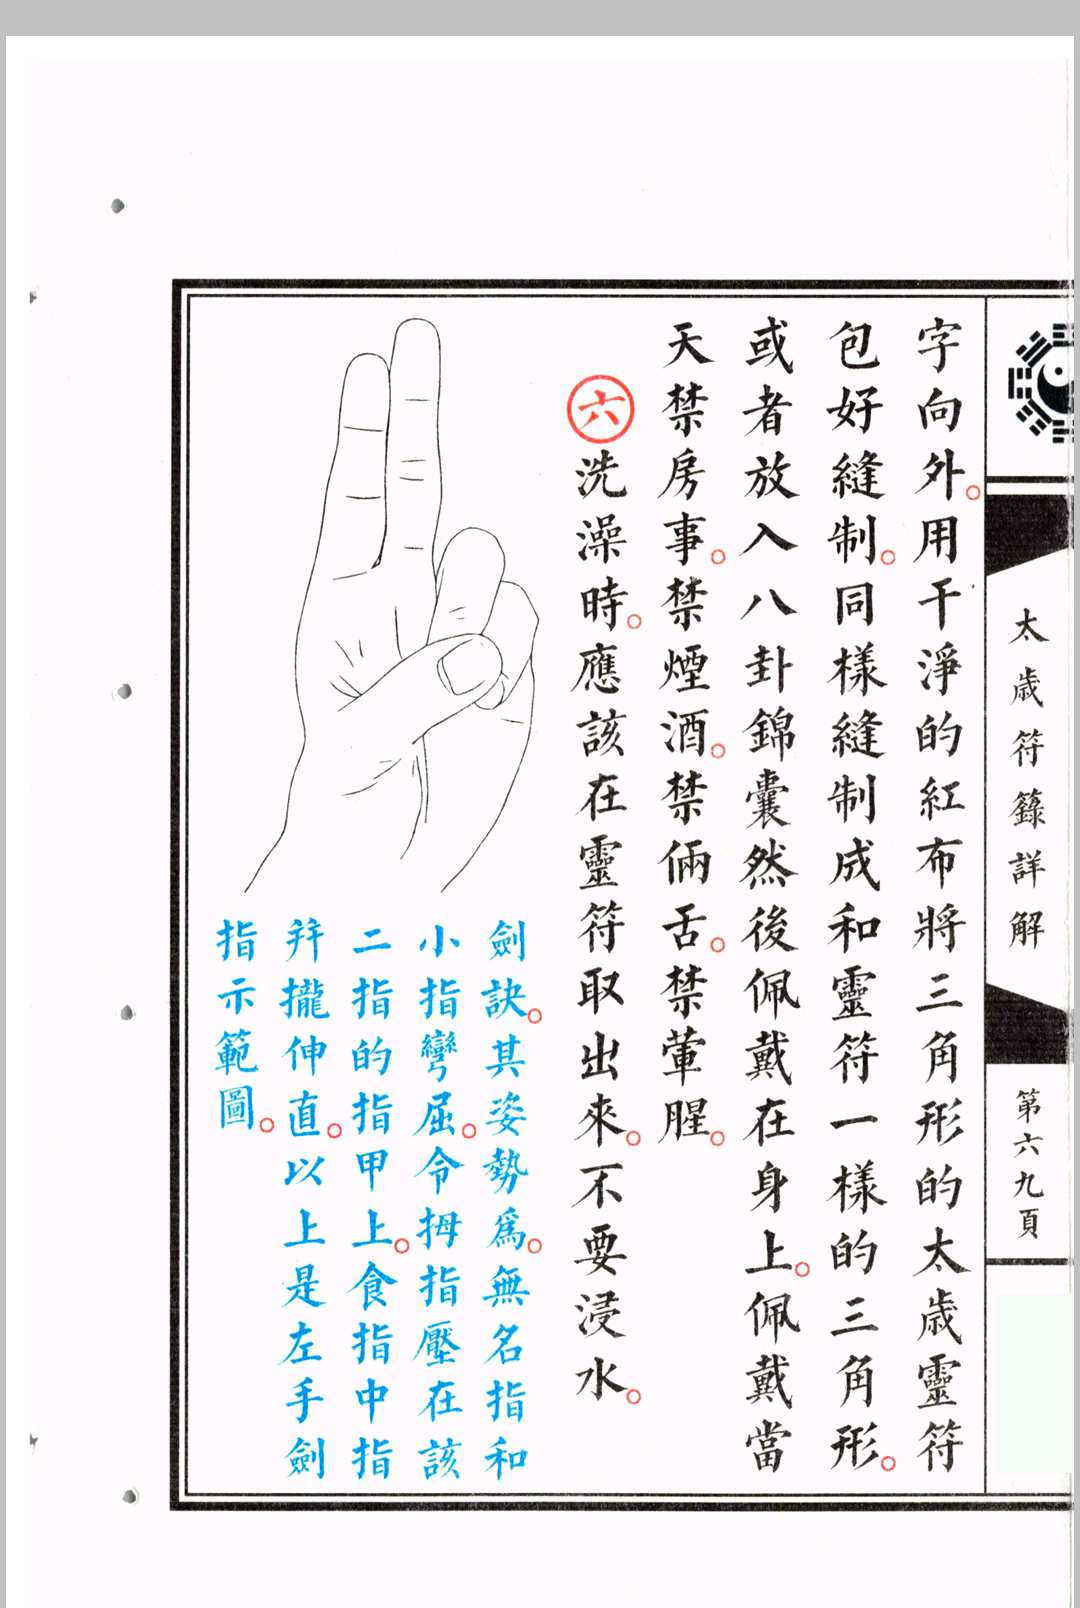 太歲符籙詳解
第六九頁
字向外。用干淨的紅布將三角形的太歲靈符
包好縫制。同樣縫制成和靈符一樣的三角形。
或者放入八卦錦囊然後佩戴在身上。佩戴當
天禁房事。禁煙酒。禁倆舌。禁葷腥。
六洗澡時。應該在靈符取出來。不要浸水。
劍訣。其姿勢爲。無名指和
小指彎屈。令拇指壓在該
二指的指甲上。食指中指
拜攏伸直。以上是左手劍
指示範圖。